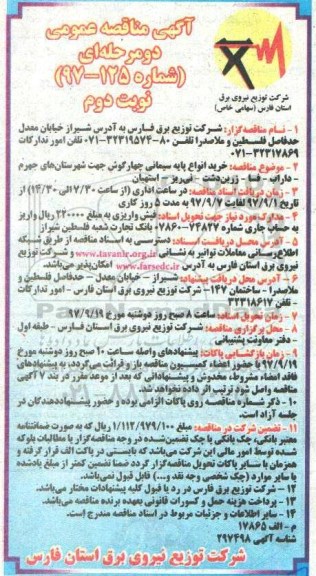 آگهی مناقصه عمومی
دو مرحله‌ای
(شماره ۱۲۵-۹۷)
نوبت دوم
شرکت توزیع نیروی برق
استان فارس (سهامی خاص)
۱ - نام مناقصه‌گزار: شرکت توزیع برق فارس به آدرس شیراز خیابان معدل
حدفاصل فلسطین و ملاصدرا تلفن ۸۰-۳۲۳۱۹۵۷۴-۰۷۱ تلفن امور تدارکات
۰۷۱-۳۲۳۱۷۸۶۹
۲ - موضوع مناقصه: خرید انواع پایه سیمانی چهارگوش جهت شهرستان‌های جهرم
- داراب - فسا - زرین‌دشت - نی‌ریز - استهبان
۳ - زمان دریافت اسناد مناقصه: در ساعت اداری (از ساعت ۷/۳۰ الی ۱۴/۳۰) از
تاریخ ۹۷/۹/۱ لغایت ۹۷/۹/۷ به مدت ۵ روز کاری
۴ - مدارک مورد نیاز جهت تحویل اسناد: فیش واریزی به مبلغ ۲۲۰۰۰۰ ریال واریز
به حساب جاری شماره ۰۷۸۶۰-۷۴۸۲۷ بانک تجارت شعبه فلسطین شیراز
۵ - آدرس محل دریافت اسناد: دسترسی به اسناد مناقصه از طریق شبکه
اطلاع‌رسانی معاملات توانیر به نشانی www.tavanir.org.ir و شرکت توزیع
نیروی برق استان فارس به آدرس www.farsedc.ir امکان‌پذیر می‌باشد.
۶ - آدرس محل دریافت پیشنهاد: شیراز - خیابان معدل - حدفاصل فلسطین و
ملاصدرا - ساختمان ۱۴۷ - شرکت توزیع نیروی برق استان فارس - امور تدارکات -
تلفن ۳۲۳۱۸۶۱۷
۷ - زمان تحویل اسناد: ساعت ۸ صبح روز دوشنبه مورخ ۹۷/۹/۱۹
۸ - محل برگزاری مناقصه: شرکت توزیع نیروی برق استان فارس - طبقه اول
- دفتر معاونت پشتیبانی
۹ - زمان بازگشایی پاکات: پیشنهادهای واصله ساعت ۱۰ صبح روز دوشنبه مورخ
۹۷/۹/۱۹ با حضور اعضاء کمیسیون مناقصه باز و قرائت می‌گردد، به پیشنهادهای
فاقد امضاء، مشروط، مخدوش و پیشنهاداتی که بعد از موعد مقرر در بند ۷ آگهی
مناقصه واصل شود ترتیب اثر داده نخواهد شد.
۱۰ - ذکر شماره مناقصه روی پاکات الزامی بوده و حضور پیشنهاددهندگان در
جلسه آزاد است.
۱۱ - تضمین شرکت در مناقصه: مبلغ ۱/۱۱۲/۹۷۹/۱۰۰ ریال که به صورت ضمانتنامه
معتبر بانکی، چک بانکی یا چک تضمین‌شده در وجه مناقصه‌گزار یا مطالبات بلوکه
شده توسط امور مالی این شرکت می‌باشد که بایستی در پاکت الف قرار گرفته و
همزمان با سایر پاکات تحویل مناقصه‌گزار گردد ضمنا تضمین کمتر از مبلغ یادشده
یا سایر موارد (چک شخصی وجه نقد و...) قابل قبول نمی‌باشد.
۱۲ - شرکت توزیع برق فارس در رد یا قبول کلیه پیشنهادات مختار می‌باشد.
۱۳ - پرداخت هزینه حمل و کسورات قانونی به‌عهده برنده مناقصه می‌باشد.
۱۴ - سایر اطلاعات و جزئیات مربوط در اسناد مناقصه مندرج است.
م - الف ۱۷۸۶۵
شناسه آگهی ۲۹۷۴۹۸
شرکت توزیع نیروی برق استان فارس